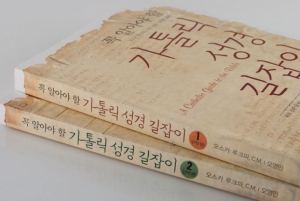 꼭 알아야 할
가톨릭 성경
길잡이
A Catholic Guide to the Bible
꼭 알아야 할 가톨릭 성경 길잡이 1 오스카 루크피 C.M. | 오영민
꼭 알아야 할 가톨릭 성경 길잡이 2 오스카 루크피 C.M. | 오영민